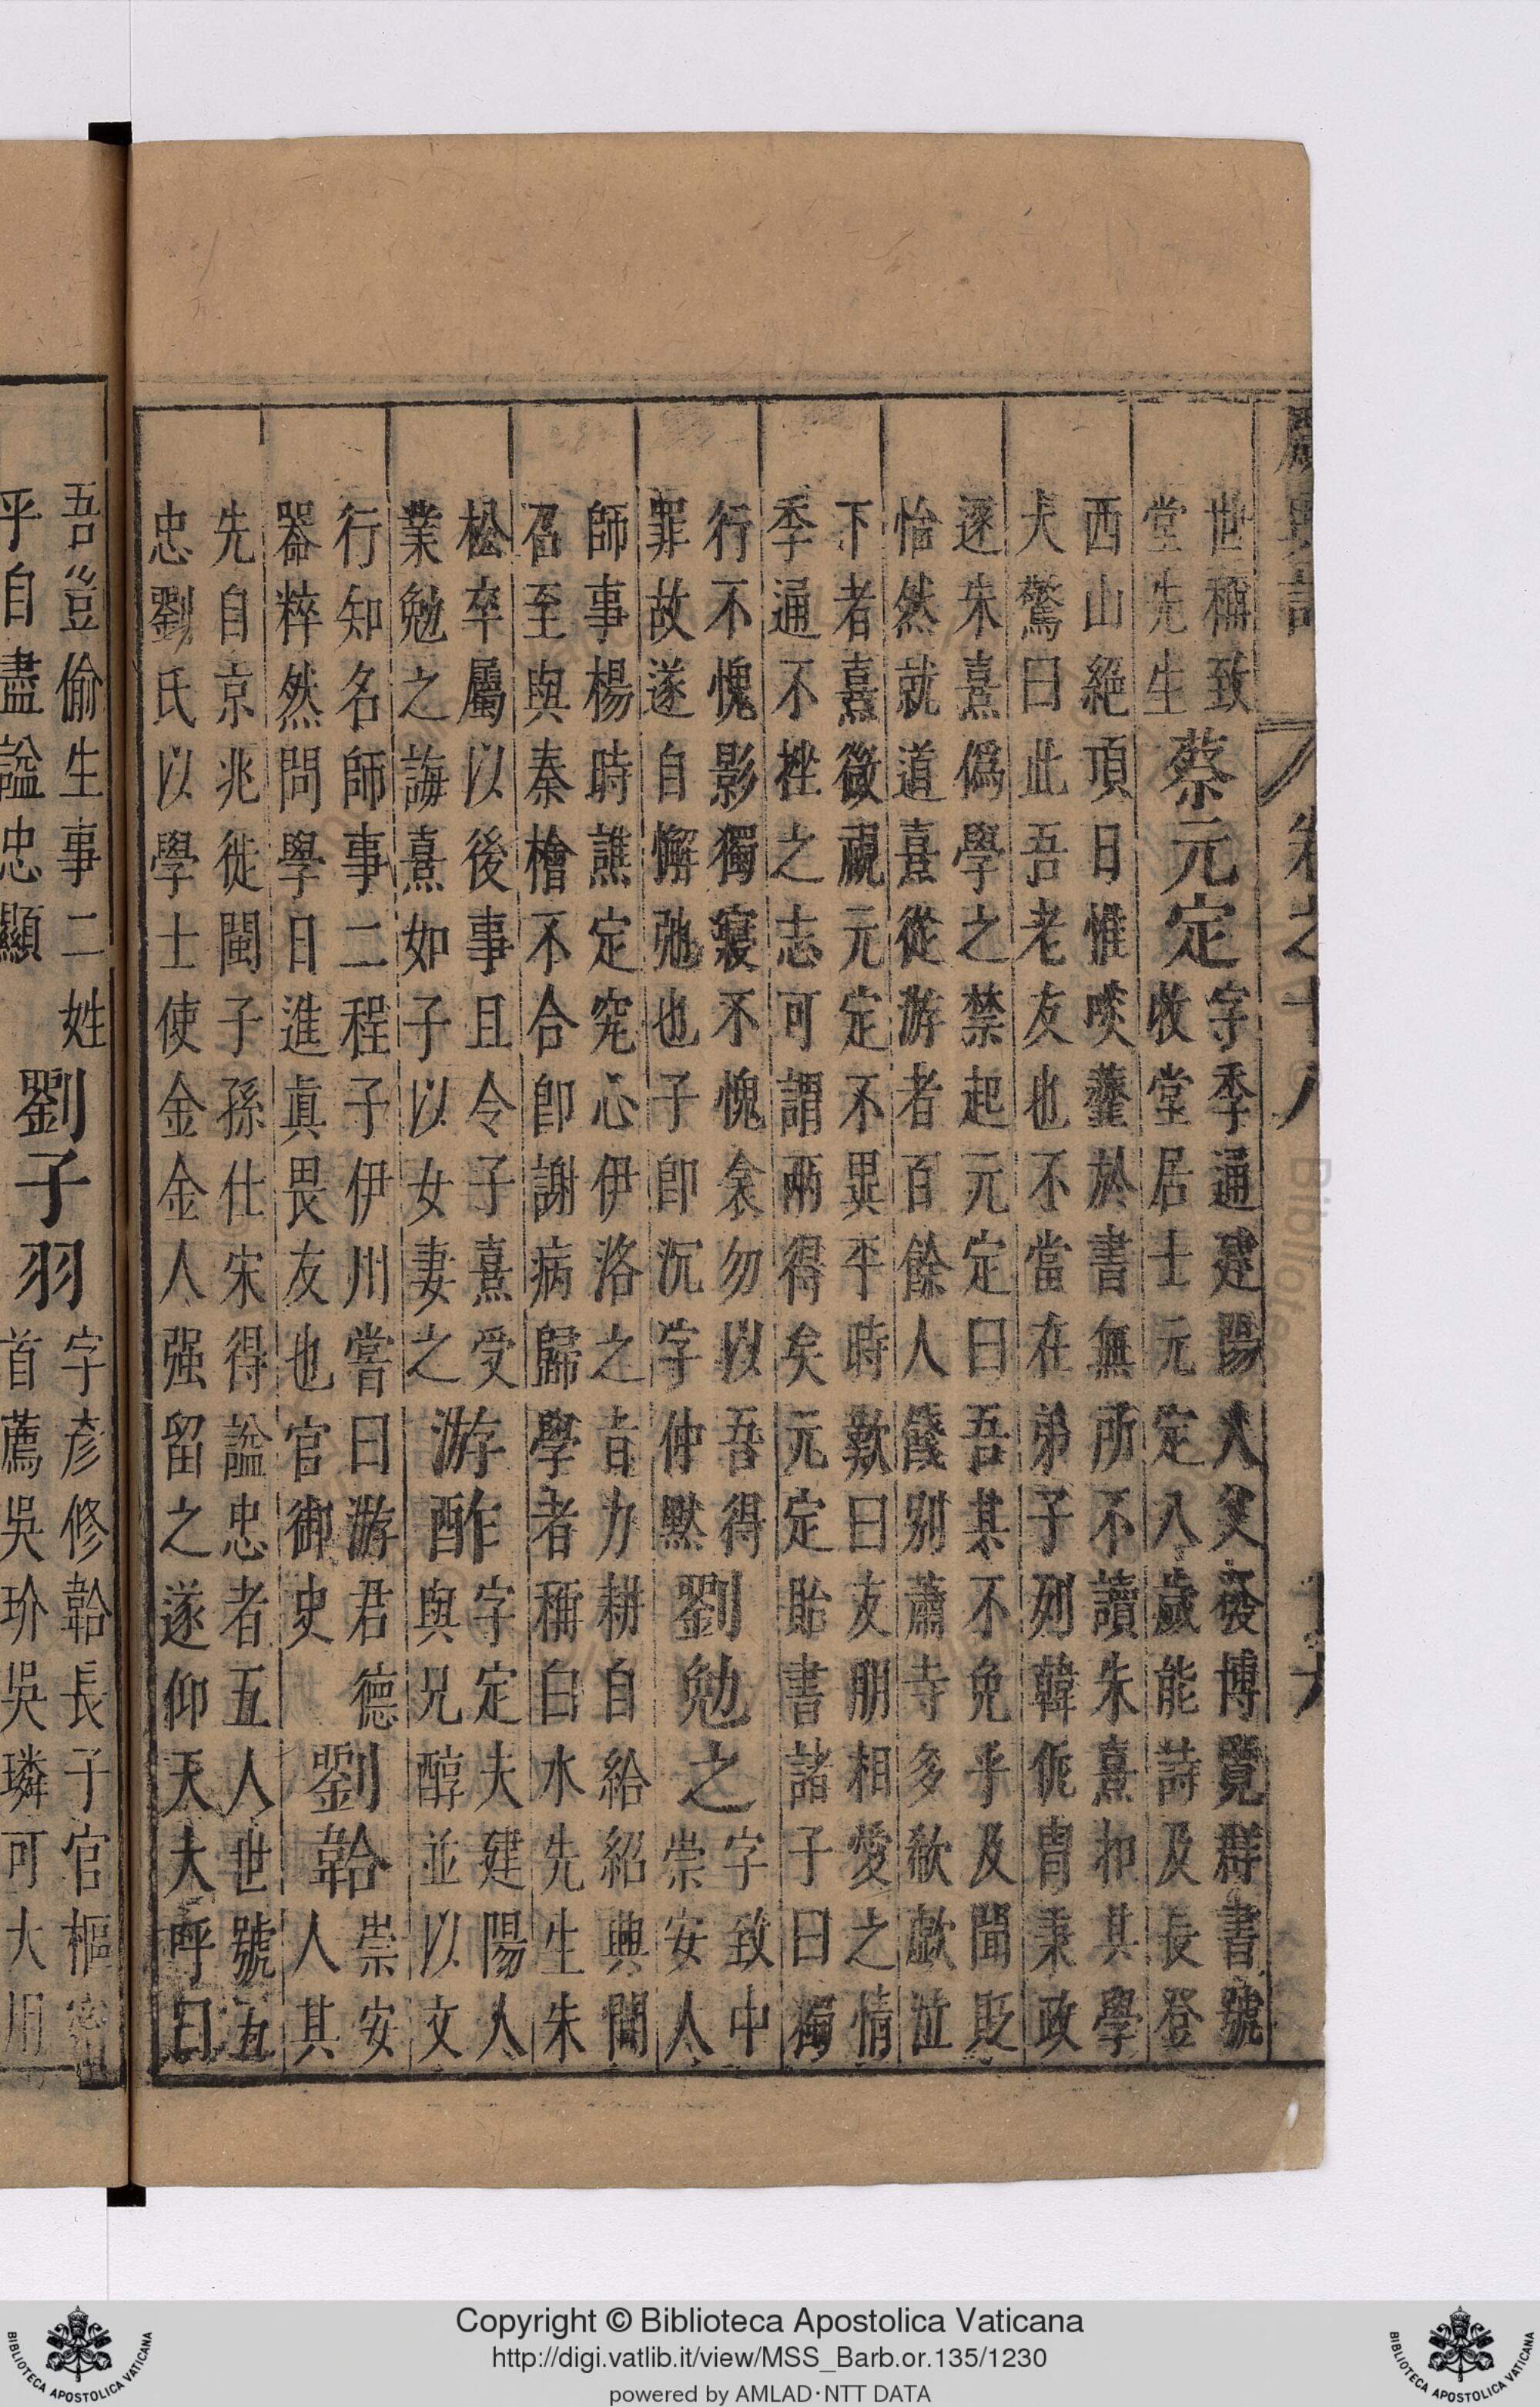 世稱致
堂先生
蔡元定
字季通建陽人父發博覽群書號
收堂居士元定八歲能詩及長登
西山絕頂日惟啖虀於書無所不讀朱熹扣其學
大驚曰此吾老友也不當在弟子列韓侂胄秉政
逐朱熹僞學之禁起元定曰吾其不免乎及聞貶
怡然就道熹從游者百餘人餞别蕭寺多欷歔泣
下者熹微視元定不異平時歎曰友朋相愛之情
季通不挫之志可謂兩得矣元定貽書諸子曰獨
行不愧影獨寢不愧衾勿以吾得
罪故遂自懈弛也子卽沉字仲默
劉勉之
字致中
崇安人
師事楊時譙定究心伊洛之旨力耕自給紹興間
召至與秦檜不合卽謝病歸學者稱白水先生朱
松卒屬以後事且令子熹受
業勉之誨熹如子以女妻之
游酢
字定夫建陽人
與兄醇並以文
行知名師事二程子伊川嘗曰游君德
器粹然問學日進眞畏友也官御史
劉韐
崇安
人其
先自京兆徙閩子孫仕宋得謚忠者五人世號五
忠劉氏以學士使金金人强留之遂仰天大呼曰
吾豈偷生事二姓
乎自盡謚忠顯
劉子羽
字彥修韐長子官樞密
首薦吳玠吳璘可大用
卷之十八
Copyright © Biblioteca Apostolica Vaticana
http://digi.vatlib.it/view/MSS_Barb.or.135/1230
powered by AMLAD·NTT DATA
BIBLIOTECA APOSTOLICA VATICANA
BIBLIOTECA APOSTOLICA VATICANA